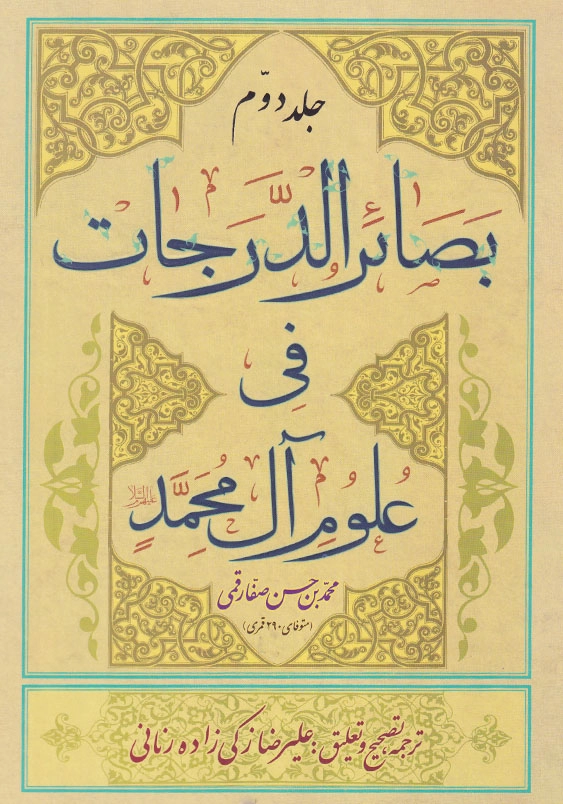 جلد دوّم
بَصَائِرُ الدَّرَجات
فِی
عُلُومِ آلِ مُحَمَّدٍ علیهم السّلام
محمّد بن حسن صفّار قمی
(متوفای ۲۹۰ قمری)
ترجمه، تصحیح و تعلیق: علیرضا زکی زاده رنانی